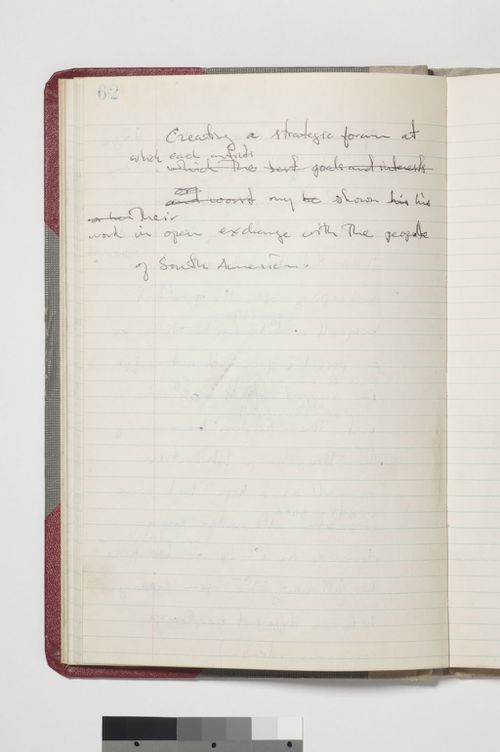 62
Creating a strategic forum at
which each artists
which the best goals and interests
and worst may be shown his his
or her Their
work in open exchange with the people
of South American.